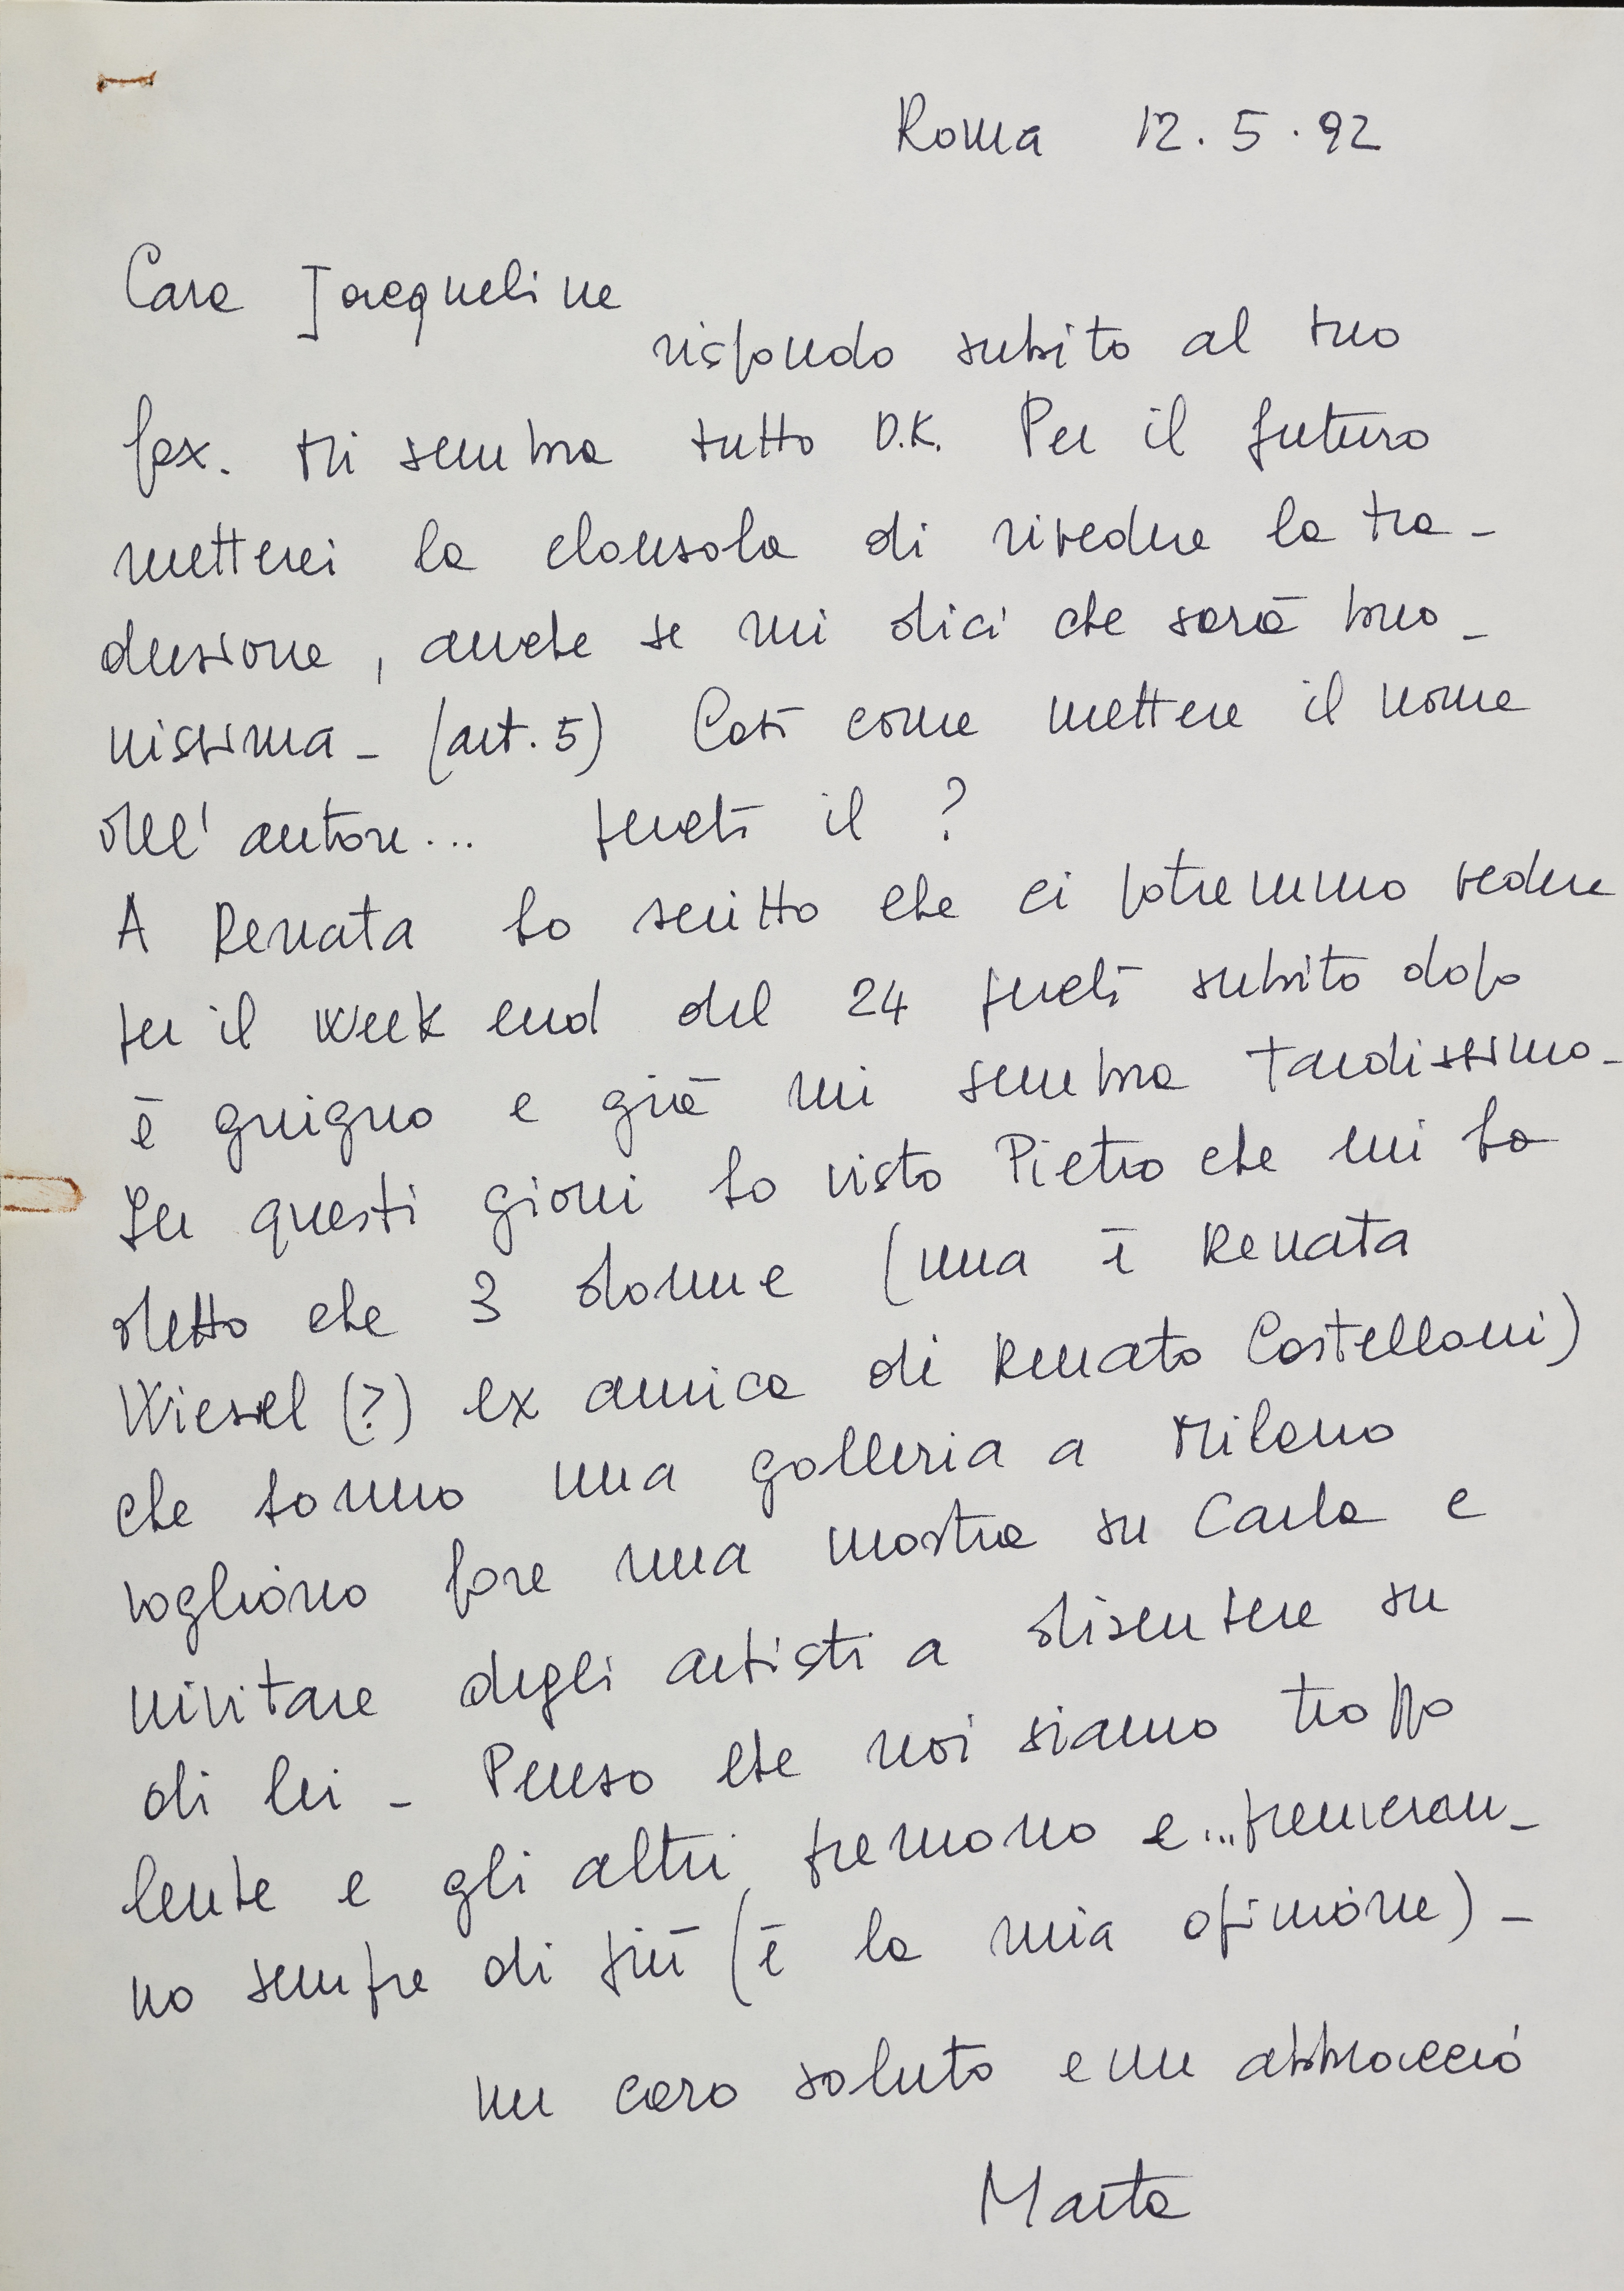 Roma 12.5.92
Cara Jacqueline
rispondo subito al tuo
fax. Mi sembra tutto O.K. Per il futuro
metterei la clausola di rivedere la tra-
duzione, anche se mi dici che sarà buo-
nissima - (art. 5) Così come mettere il nome
dell'autore... perché il ?
A Renata ho scritto che ci potremmo vedere
per il week end del 24 perché subito dopo
è giugno e già mi sembra tardissimo -
In questi giorni ho visto Pietro che mi ha
detto che 3 donne (una è Renata
Wiesel (?) ex amica di Renato Castellani)
che hanno una galleria a Milano
vogliono fare una mostra su Carla e
invitare degli artisti a discutere su
di lei - Penso che noi siamo troppo
lente e gli altri premono e...premeran-
no sempre di più (è la mia opinione) -
un caro saluto e un abbraccio
Marta